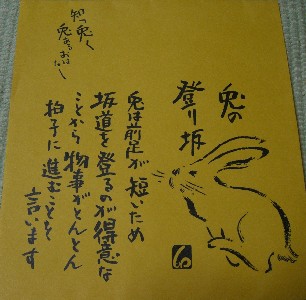 兎の
登り坂
兎は前足が短いため
坂道を登るのが得意な
ことから物事がとんとん
拍子に進むことを
言います